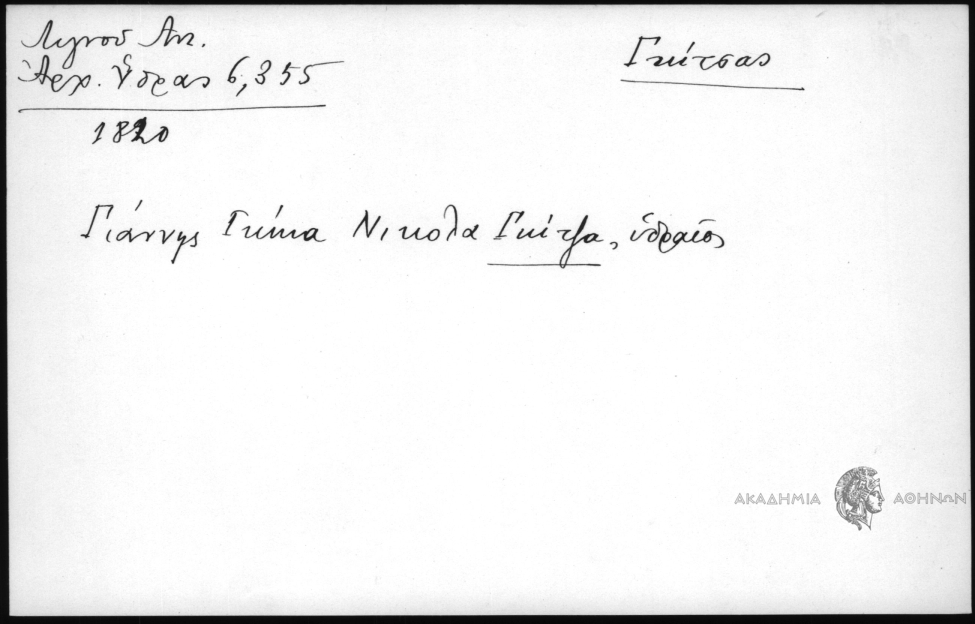 Λιγνού Αντ.
Ἀρχ. Ὕδρας 6, 355
Γκίτσας
1820
Γιάννης Γκίκα Νικολα Γκίτζα, ὑδραῖος
ΑΚΑΔΗΜΙΑ ΑΘΗΝΩΝ